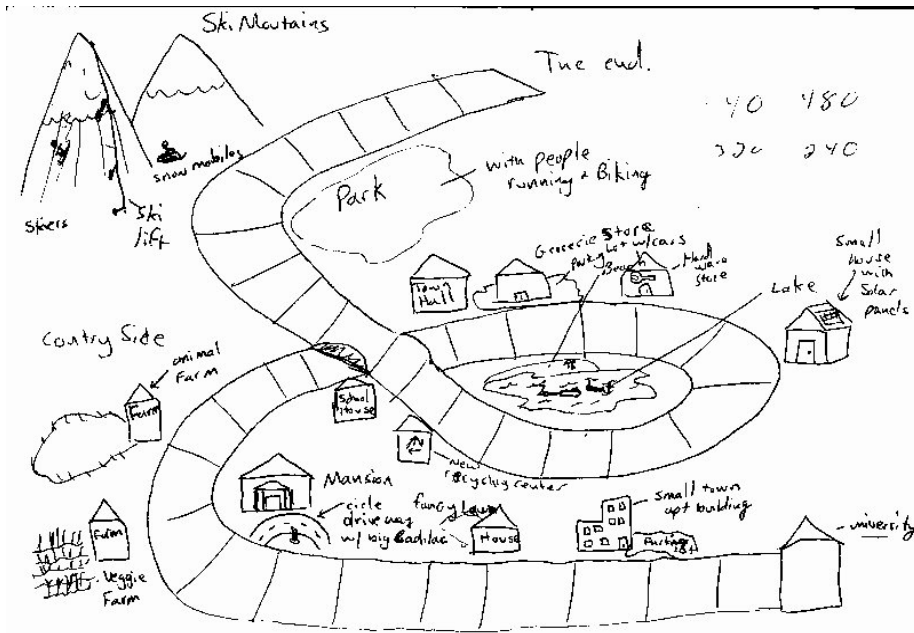 Ski Moutains
The end.
40 480
320 240
snow mobiles
Skiers
Ski
lift
Park
with people
running & Biking
Grocerie Store
Parking Lot w/cars
Beach
Hard
ware
store
Town
Hall
Lake
Small
house
with
Solar
panels
Contry Side
animal
Farm
Farm
School
House
New
recycling center
Mansion
cicle
driveway
w/ big Cadilac
fancy Lawn
House
small town
apt building
Parking
lot
university
Farm
Veggie
Farm